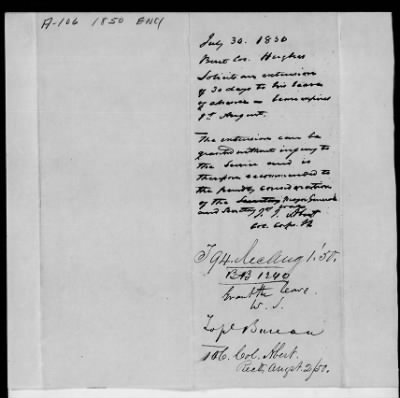 A-106 1850 ENG
July 30. 1850
Hughes
Solicits an extension
of 30 days to his leave
of absence — leave expires
August.
The extension can be
granted without injury to
the Service and is
therefore recommended to
the consideration
of the Secretary
and Secretary of War
J. J. Abert
Col. Corps.
Rec Aug 1. 50.
BB 1240
Grant the leave.
W. S.
Topl Bureau
106. Col. Abert.
Recd. Augst. 2/50.